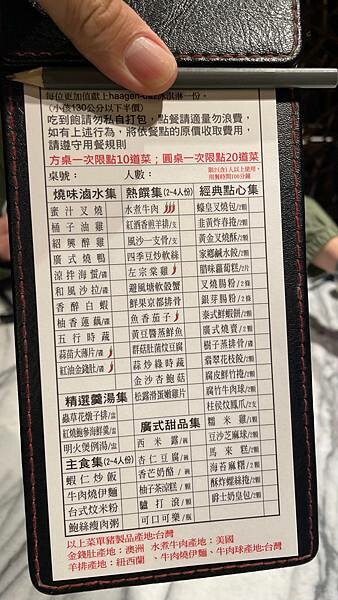 每位更加值獻上haagen-da淇淋一份。
(小孩130公分以下半價)
吃到飽請勿私自打包，點餐請適量勿浪費，
如有上述行為，將依餐點的原價收取費用，
請遵守用餐規則
方桌一次限點10道菜；圓桌一次限點20道菜
桌號： 人數：
限計(含)人以上使用，
用餐時間100分鐘
燒味滷水集
蜜汁叉燒
桶子油雞
紹興醉雞
廣式燒鴨
涼拌海蜇/碟
和風沙拉/碟
香醉白蝦
柚香蓮藕/碟
五行時蔬
蒜苗大薄片/碟
紅油金錢肚/碟
精選羹湯集
蟲草花燉子排/盅
紅燒鮑參海鮮羹/盅
明火煲例湯/盅
主食集(2~4人份)
蝦仁炒飯
牛肉燒伊麵
台式炆米粉
鮑絲瘦肉粥
熱饌集(2~4人份)
水煮牛肉
紅酒香煎羊排/支
風沙一支骨/支
四季豆炒軟絲
左宗棠雞
避風塘軟殼蟹
鮮果京都排骨
魚香茄子
黃豆醬蒸鮮魚
群菇肚菌炆豆腐
蒜炒綠時蔬
金沙杏鮑菇
松露滑蛋嫩雞片
廣式甜品集
西米露/碗
杏仁豆腐/碗
香芒奶酪/碗
柚子茶凉糕/顆
驢打滾/顆
可口可樂/瓶
經典點心集
蠔皇叉燒包/顆
韭黃炸春捲/顆
黃金叉燒酥/顆
家鄉鹹水餃/顆
腊味蘿蔔糕/片
叉燒腸粉/條
銀芽腸粉/條
泰式鮮蝦餅/顆
廣式燒賣/顆
樹子蒸排骨/碟
翡翠花枝餃/顆
腐皮鮮竹捲/顆
腐竹牛肉球/顆
柱侯炆鳳爪/支
糯米雞/顆
豆沙芝麻球/顆
馬來糕/顆
海苔麻糬/顆
酥炸螺絲捲/顆
爵士奶皇包/顆
以上菜單豬製品產地:台灣
金錢肚產地：澳洲 水煮牛肉產地：美國
羊排產地：紐西蘭、牛肉燒伊麵、牛肉球產地:台灣